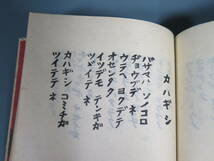 カハギシ
バサマハ ソノコロ
ヂョウブデ ネ
ウデヘ ヨクデテ
オセンタク
イツデモ テンキガ
ツヅイテ ネ
カハギシ コミチガ
ツイテテ ネ